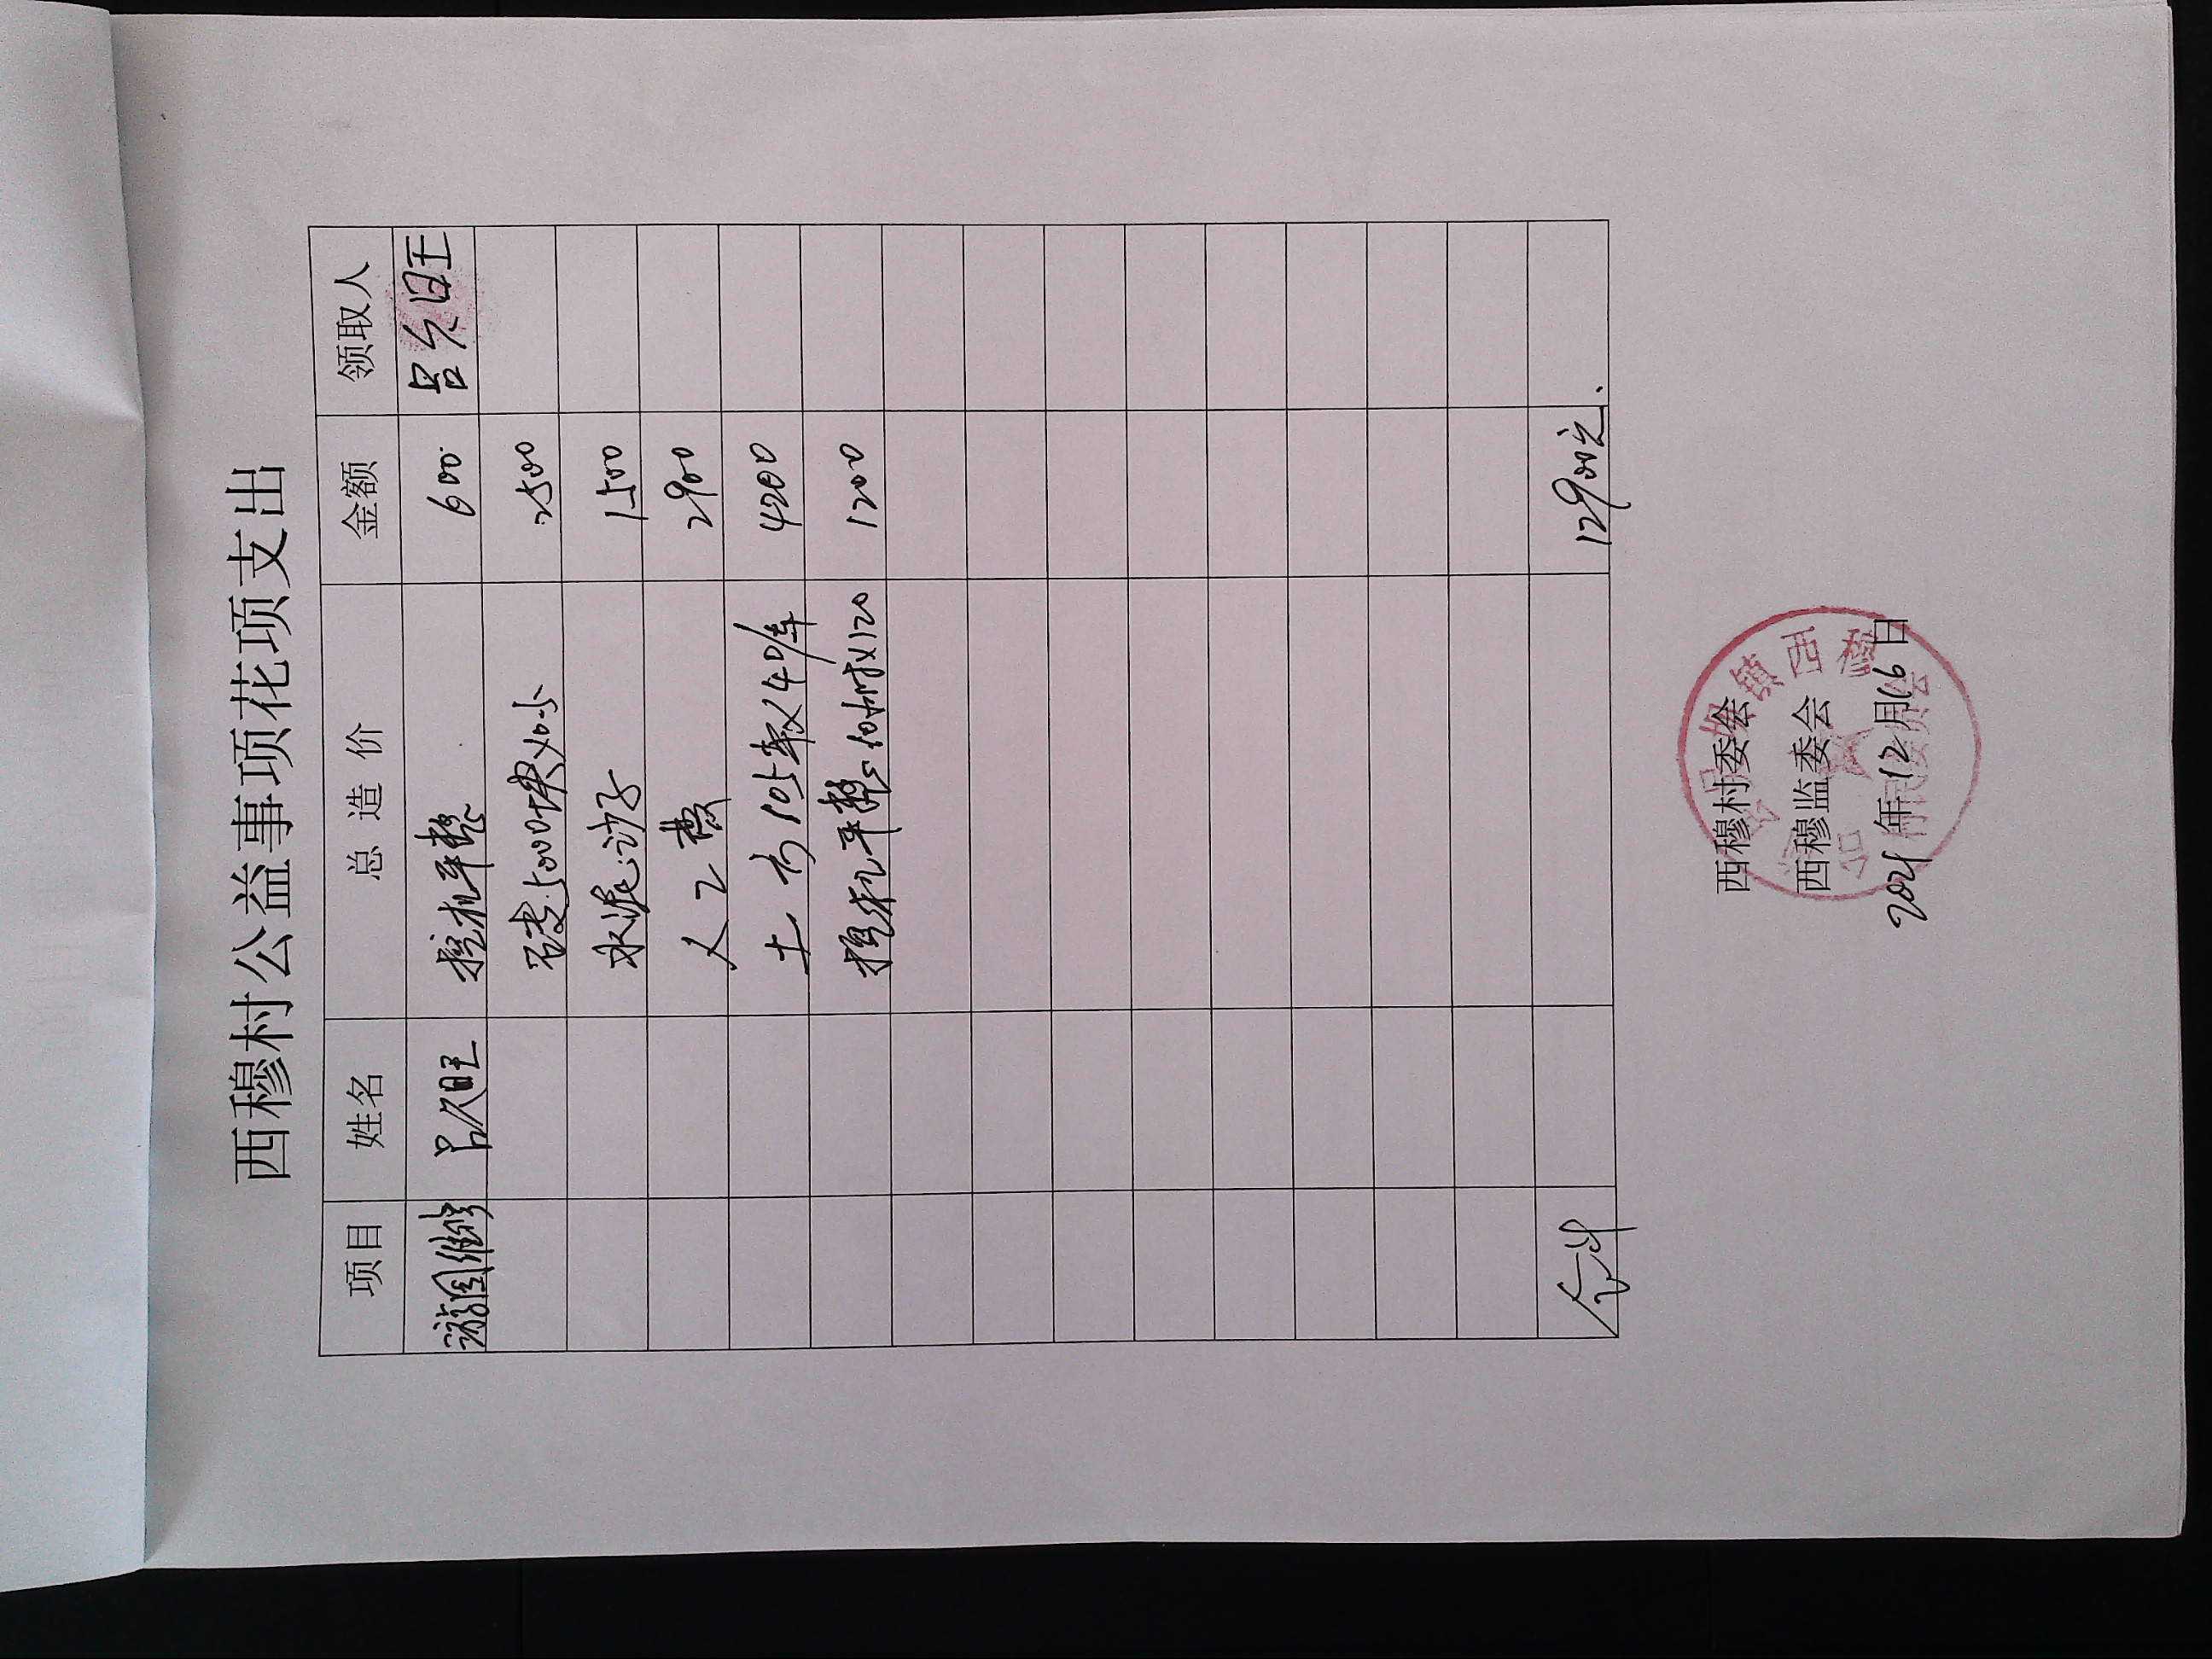 西穆村公益事项花项支出
项目 姓名 总 造 价 金额 领取人
游园维修 吕久旺 挖机平整 600 吕久旺
砖 5000块×0.5 2500
水泥.沙子 1500
人工费 2900
土方105车×40/车 4200
挖机平整10小时×120 1200
合计 12900元.
西穆村委会
西穆监委会
2021年12月16日
镇西穆